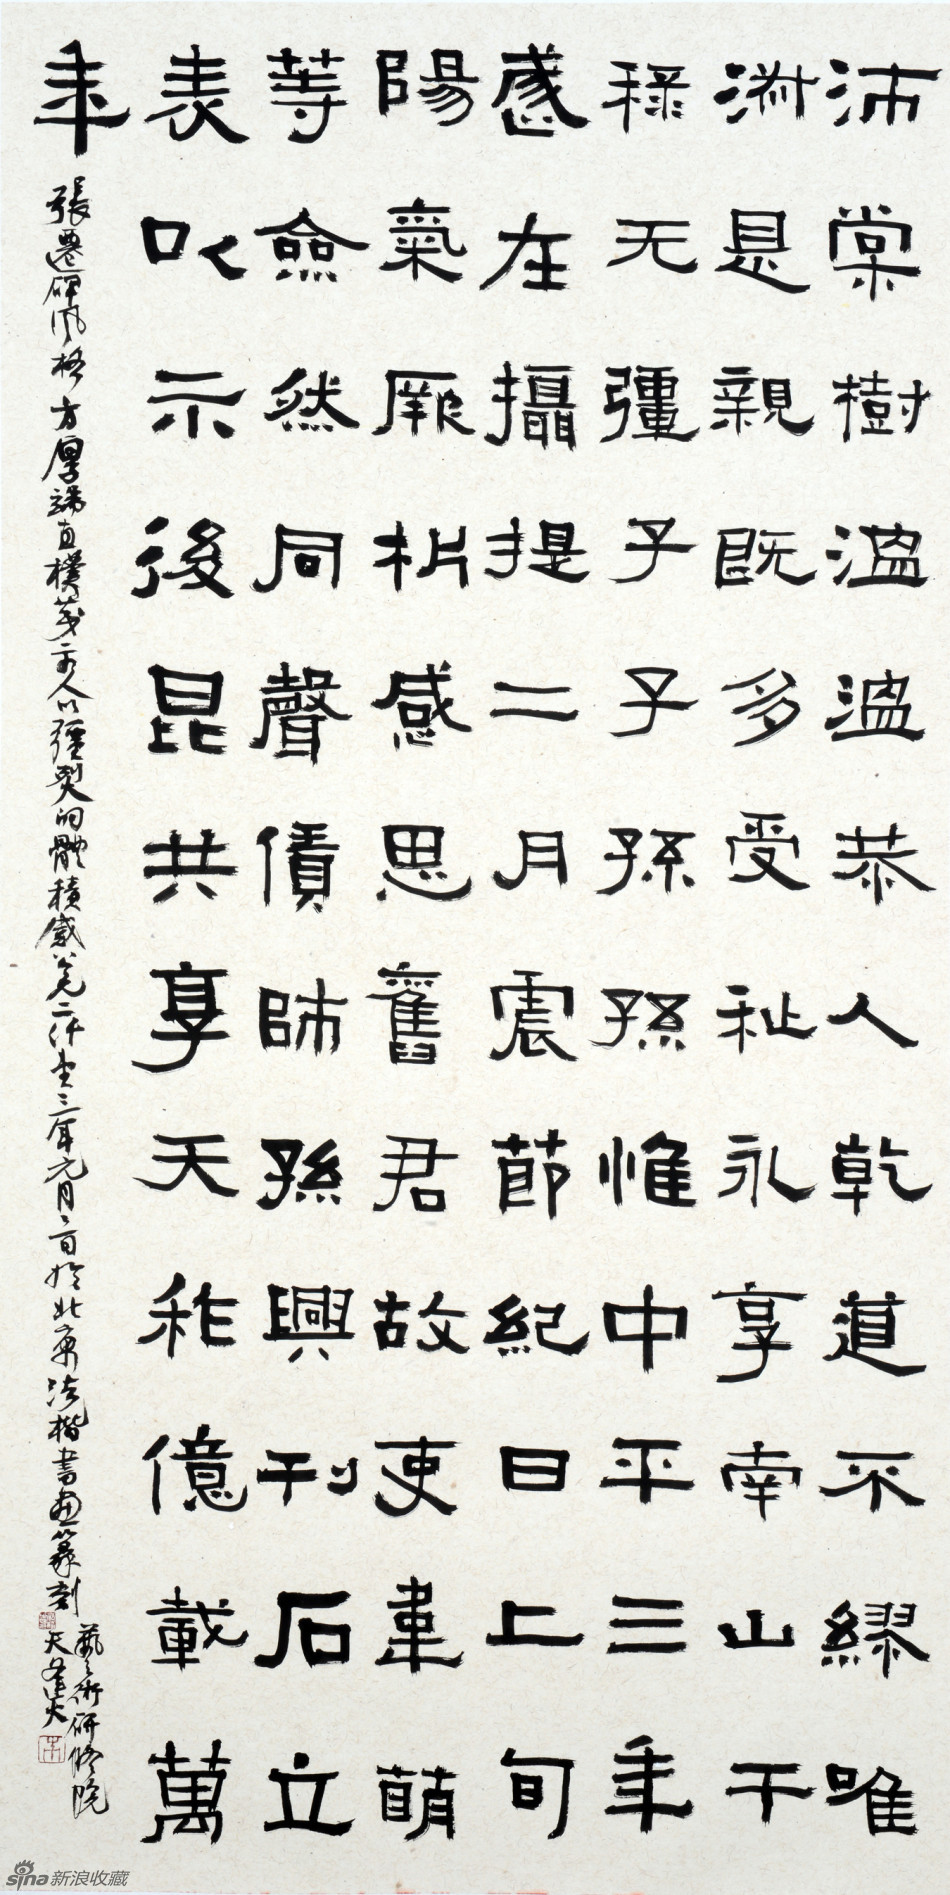 沛棠樹温温恭人乾道不繆唯
淑是親既多受祉永享南山干
禄无彊子子孫孫惟中平三年
歲在攝提二月震節紀日上旬
陽氣厥析感思舊君故吏韋萌
等僉然同聲債師孫興刊石立
表以示後昆共享天祚億載萬
年
張遷碑風格方厚端直樸茂人以彊烈的體積感三年元月於北京楷書画篆刻
藝術研修院
sina新浪收藏